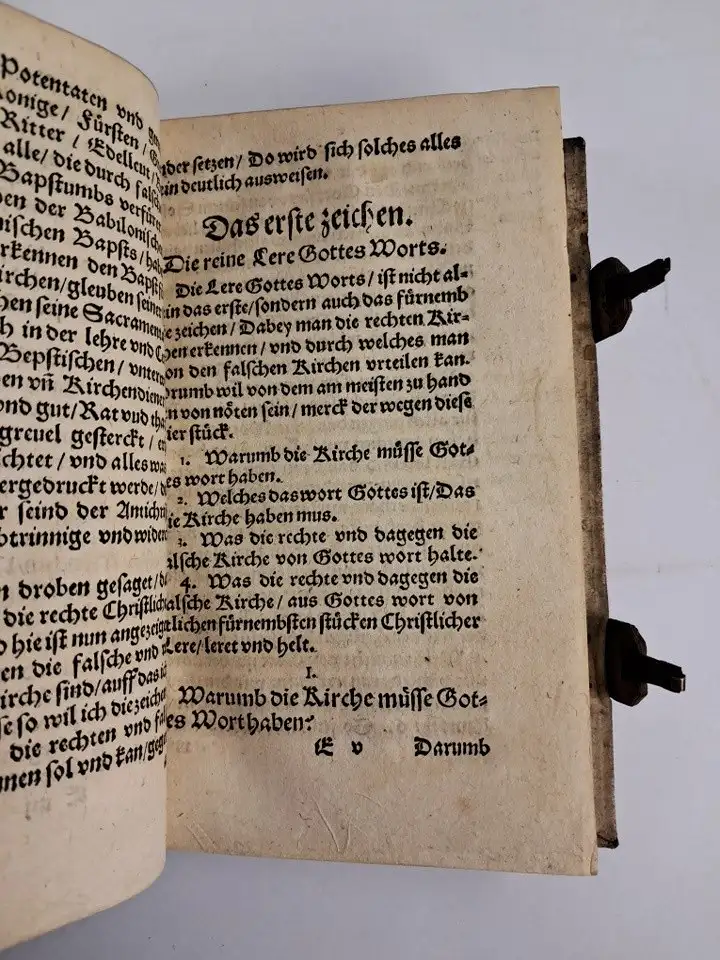 Potentaten vnd
Konige/ Fürsten/
Ritter / Edelleut/
alle/ die durch
Bapstumbs
der Babilonisch
Bapsts/
erkennen den Bapst
gleuben seinen
seine Sacramen
in der lehre vnd
Bepstischen/
vnd Kirchendiener
vnd gut/ Rat vnd
greuel gesterckt /
vnd alles was
werde/
seind der Antichr
vnd
droben gesaget/
die rechte Christlich
hie ist nun angezeigt
die falsche vnd
sind/ auff das
so wil ich die zeichen
die rechten vnd
sol vnd kan/
setzen/ Do wird sich solches alles
deutlich ausweisen.
Das erste zeichen.
Die reine Lere Gottes Worts.
Die Lere Gottes Worts/ ist nicht al-
in das erste/ sondern auch das fürnemb
zeichen/ Dabey man die rechten Kir-
chen erkennen/ vnd durch welches man
von den falschen Kirchen vrteilen kan.
wil von dem am meisten zu hand
von nöten sein/ merck der wegen diese
stück.
1. Warumb die Kirche müsse Got-
es wort haben.
2. Welches das wort Gottes ist/ Das
ie Kirche haben mus.
3. Was die rechte vnd dagegen die
alsche Kirche von Gottes wort halte.
4. Was die rechte vnd dagegen die
alsche Kirche/ aus Gottes wort von
tlichen fürnembsten stücken Christlicher
Lere/ leret vnd helt.
I.
Warumb die Kirche müsse Got-
es Wort haben?
E v Darumb